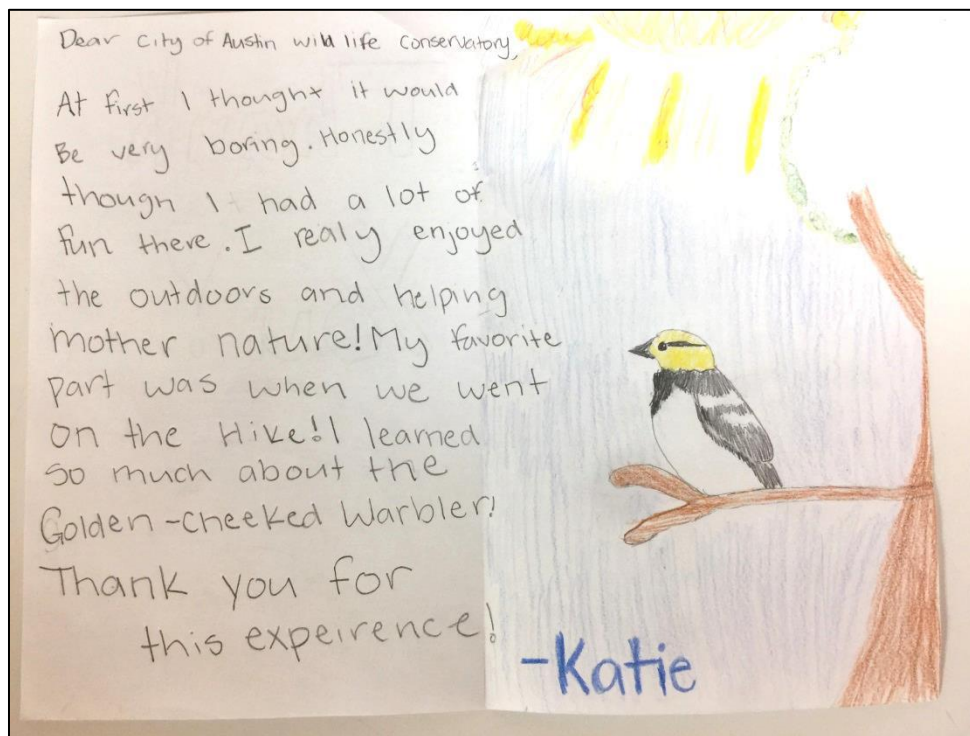 Dear City of Austin wild life Conservatory,
At first I thought it would
Be very boring. Honestly
though I had a lot of
fun there. I realy enjoyed
the outdoors and helping
mother nature! My favorite
part was when we went
on the Hike! I learned
so much about the
Golden-cheeked Warbler!
Thank you for
this expeirence!
-Katie